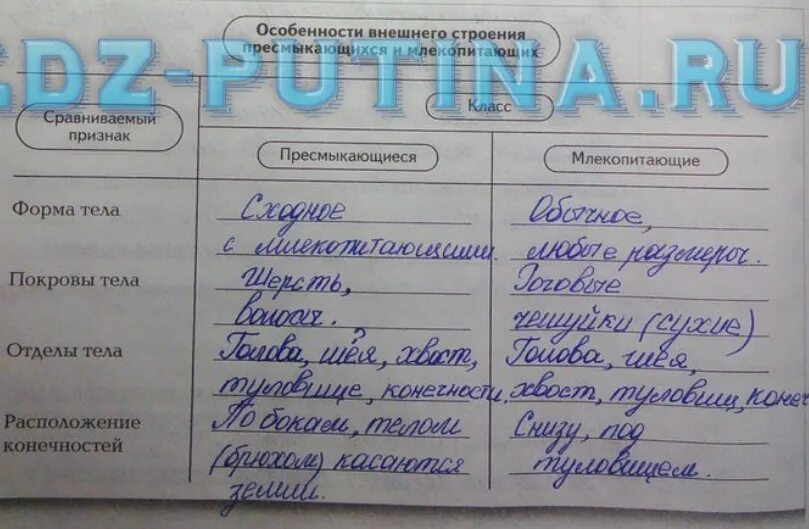 Особенности внешнего строения
пресмыкающихся и млекопитающих
.DZ-PUTINA.RU
Сравниваемый
признак
Класс
Пресмыкающиеся
Млекопитающие
Форма тела
Сходное
с млекопитающими.
Обычное,
любые размеры.
Покровы тела
Шерсть,
волосы.
Роговые
чешуйки (сухие)
Отделы тела
Голова, шея, хвост,
туловище, конечности.
Голова, шея,
хвост, туловищ, конеч
Расположение
конечностей
По бокам, телом
(брюхом) касаются
земли.
Снизу, под
туловищем.